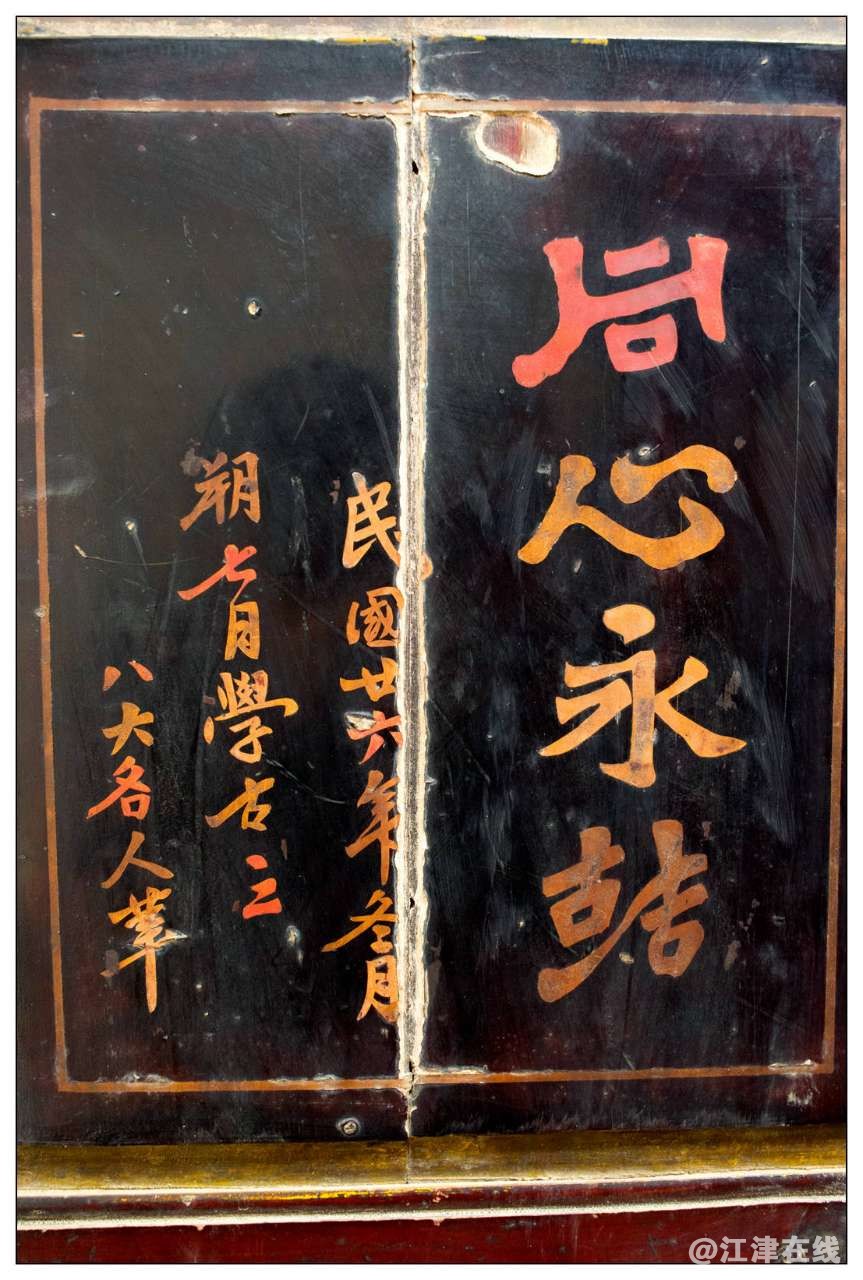 同心永
民國廿六年冬月
朔七月學古之
八大名人筆
@江津在线